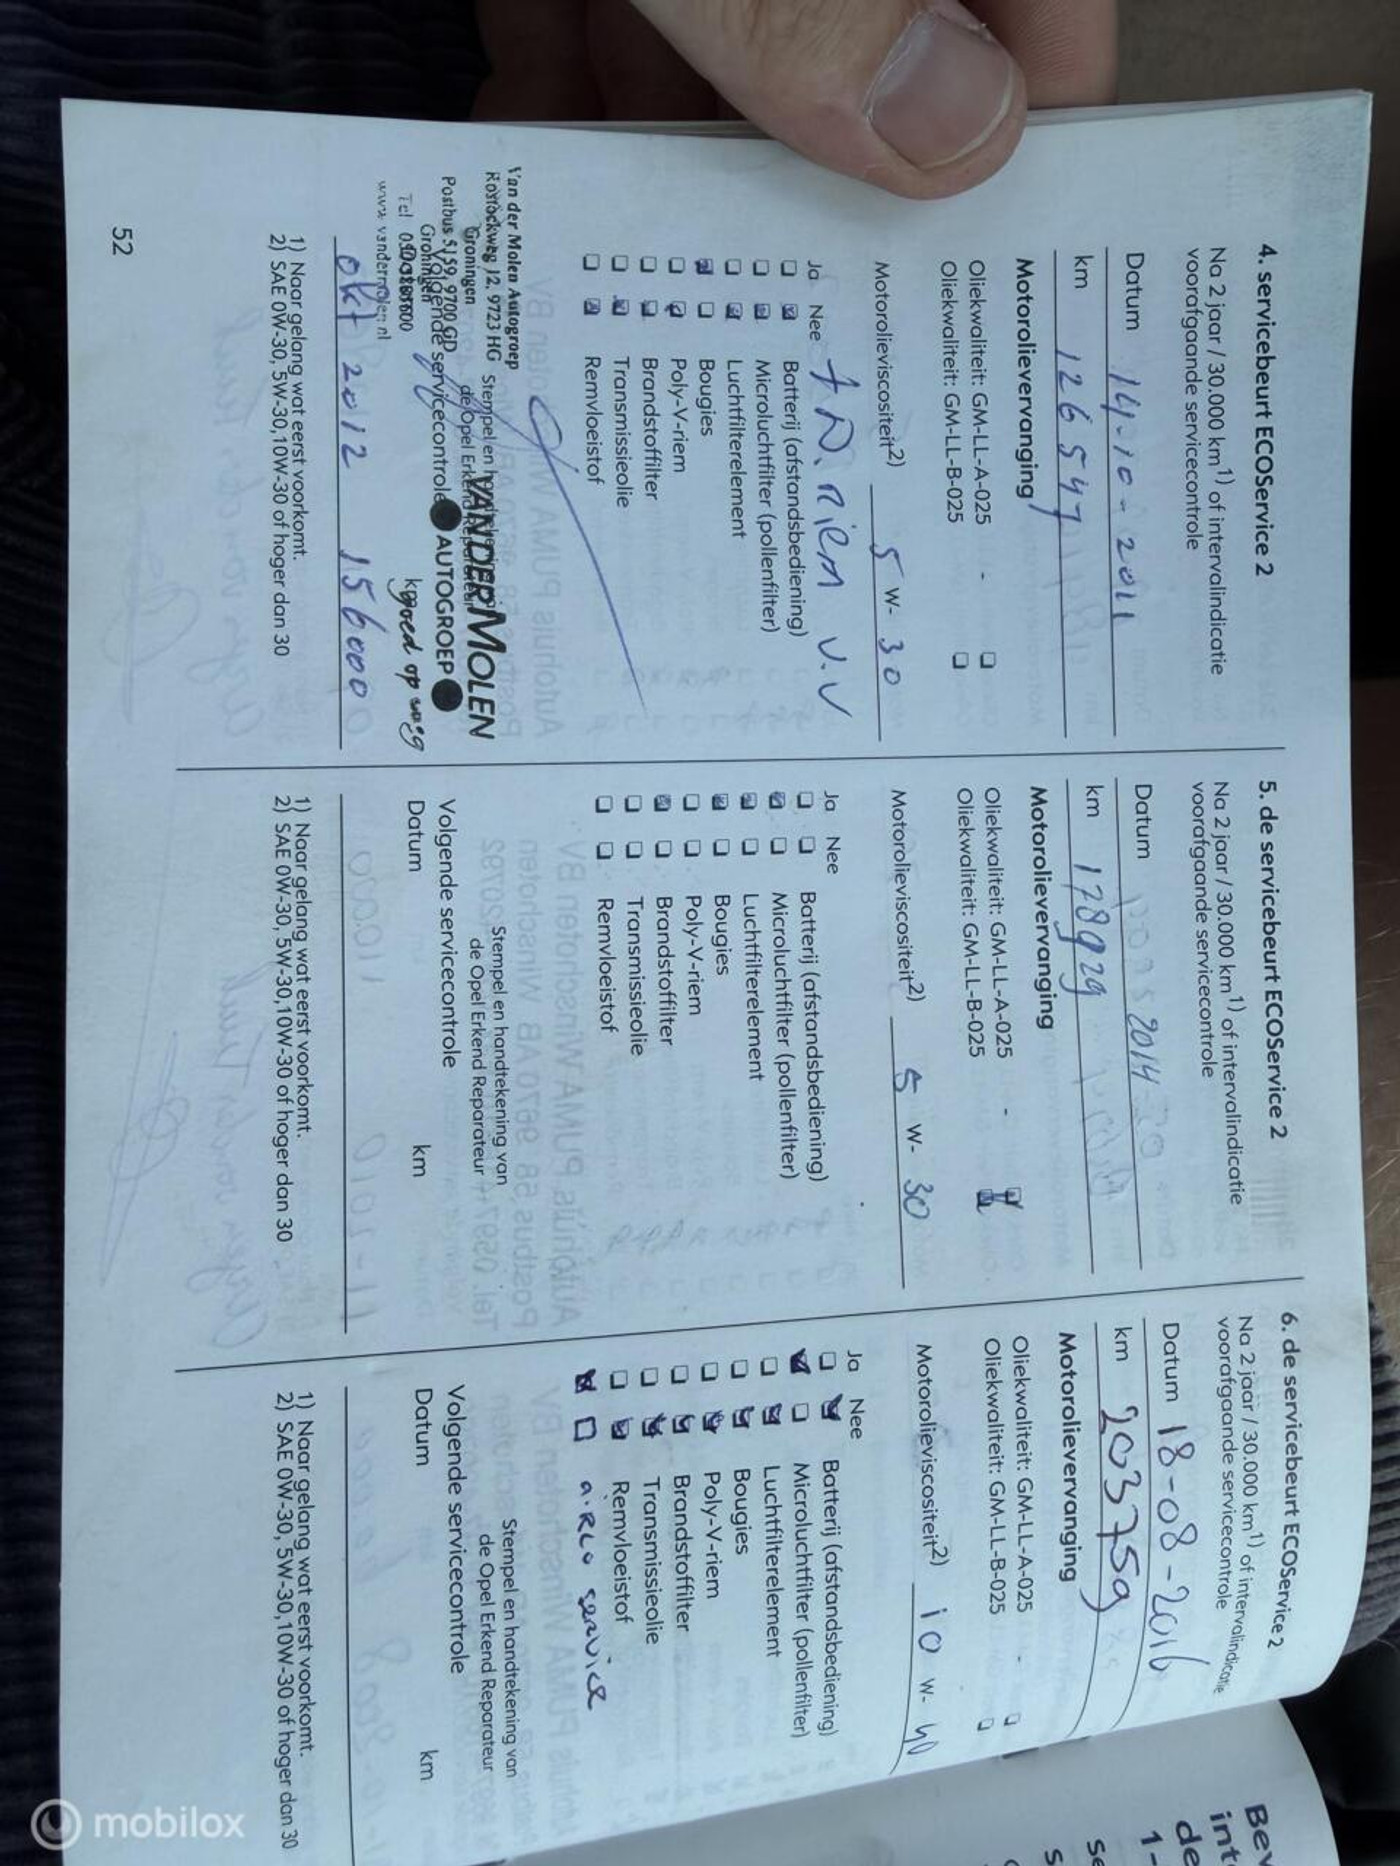 4. servicebeurt ECOService 2
Na 2 jaar / 30.000 km1) of intervalindicatie
voorafgaande servicecontrole
Datum 14-10-2011
km 126547
Motorolievervanging
Oliekwaliteit: GM-LL-A-025 - ☐
Oliekwaliteit: GM-LL-B-025 ☐
Motorolieviscositeit2) 5 W- 30
Ja Nee
Batterij (afstandsbediening)
Microluchtfilter (pollenfilter)
Luchtfilterelement
Bougies
Poly-V-riem
Brandstoffilter
Transmissieolie
Remvloeistof
Van der Molen Autogroep
Rostockweg 12, 9723 HG
Groningen
Postbus 5159, 9700 GD
Groningen
www.vandermolen.nl
Stempel en
de Opel Erkend Reparateur
VANDERMOLEN
AUTOGROEP
goed op weg
Volgende servicecontrole
Datum km
okt 2012 156000
1) Naar gelang wat eerst voorkomt.
2) SAE 0W-30, 5W-30,10W-30 of hoger dan 30
52
5. de servicebeurt ECOService 2
Na 2 jaar / 30.000 km1) of intervalindicatie
voorafgaande servicecontrole
Datum 2014
km 178929
Motorolievervanging
Oliekwaliteit: GM-LL-A-025 -
Oliekwaliteit: GM-LL-B-025
Motorolieviscositeit2) 5 W- 30
Ja Nee
Batterij (afstandsbediening)
Microluchtfilter (pollenfilter)
Luchtfilterelement
Bougies
Poly-V-riem
Brandstoffilter
Transmissieolie
Remvloeistof
Stempel en handtekening van
de Opel Erkend Reparateur
Volgende servicecontrole
Datum km
1) Naar gelang wat eerst voorkomt.
2) SAE 0W-30, 5W-30,10W-30 of hoger dan 30
6. de servicebeurt ECOService 2
Na 2 jaar / 30.000 km1) of intervalindicatie
voorafgaande servicecontrole
Datum 18-08-2016
km 203759
Motorolievervanging
Oliekwaliteit: GM-LL-A-025 - ☐
Oliekwaliteit: GM-LL-B-025 ☐
Motorolieviscositeit2) 10 W- 40
Ja Nee
Batterij (afstandsbediening)
Microluchtfilter (pollenfilter)
Luchtfilterelement
Bougies
Poly-V-riem
Brandstoffilter
Transmissieolie
Remvloeistof
airco service
Stempel en handtekening van
de Opel Erkend Reparateur
Volgende servicecontrole
Datum km
1) Naar gelang wat eerst voorkomt.
2) SAE 0W-30, 5W-30,10W-30 of hoger dan 30
mobilox